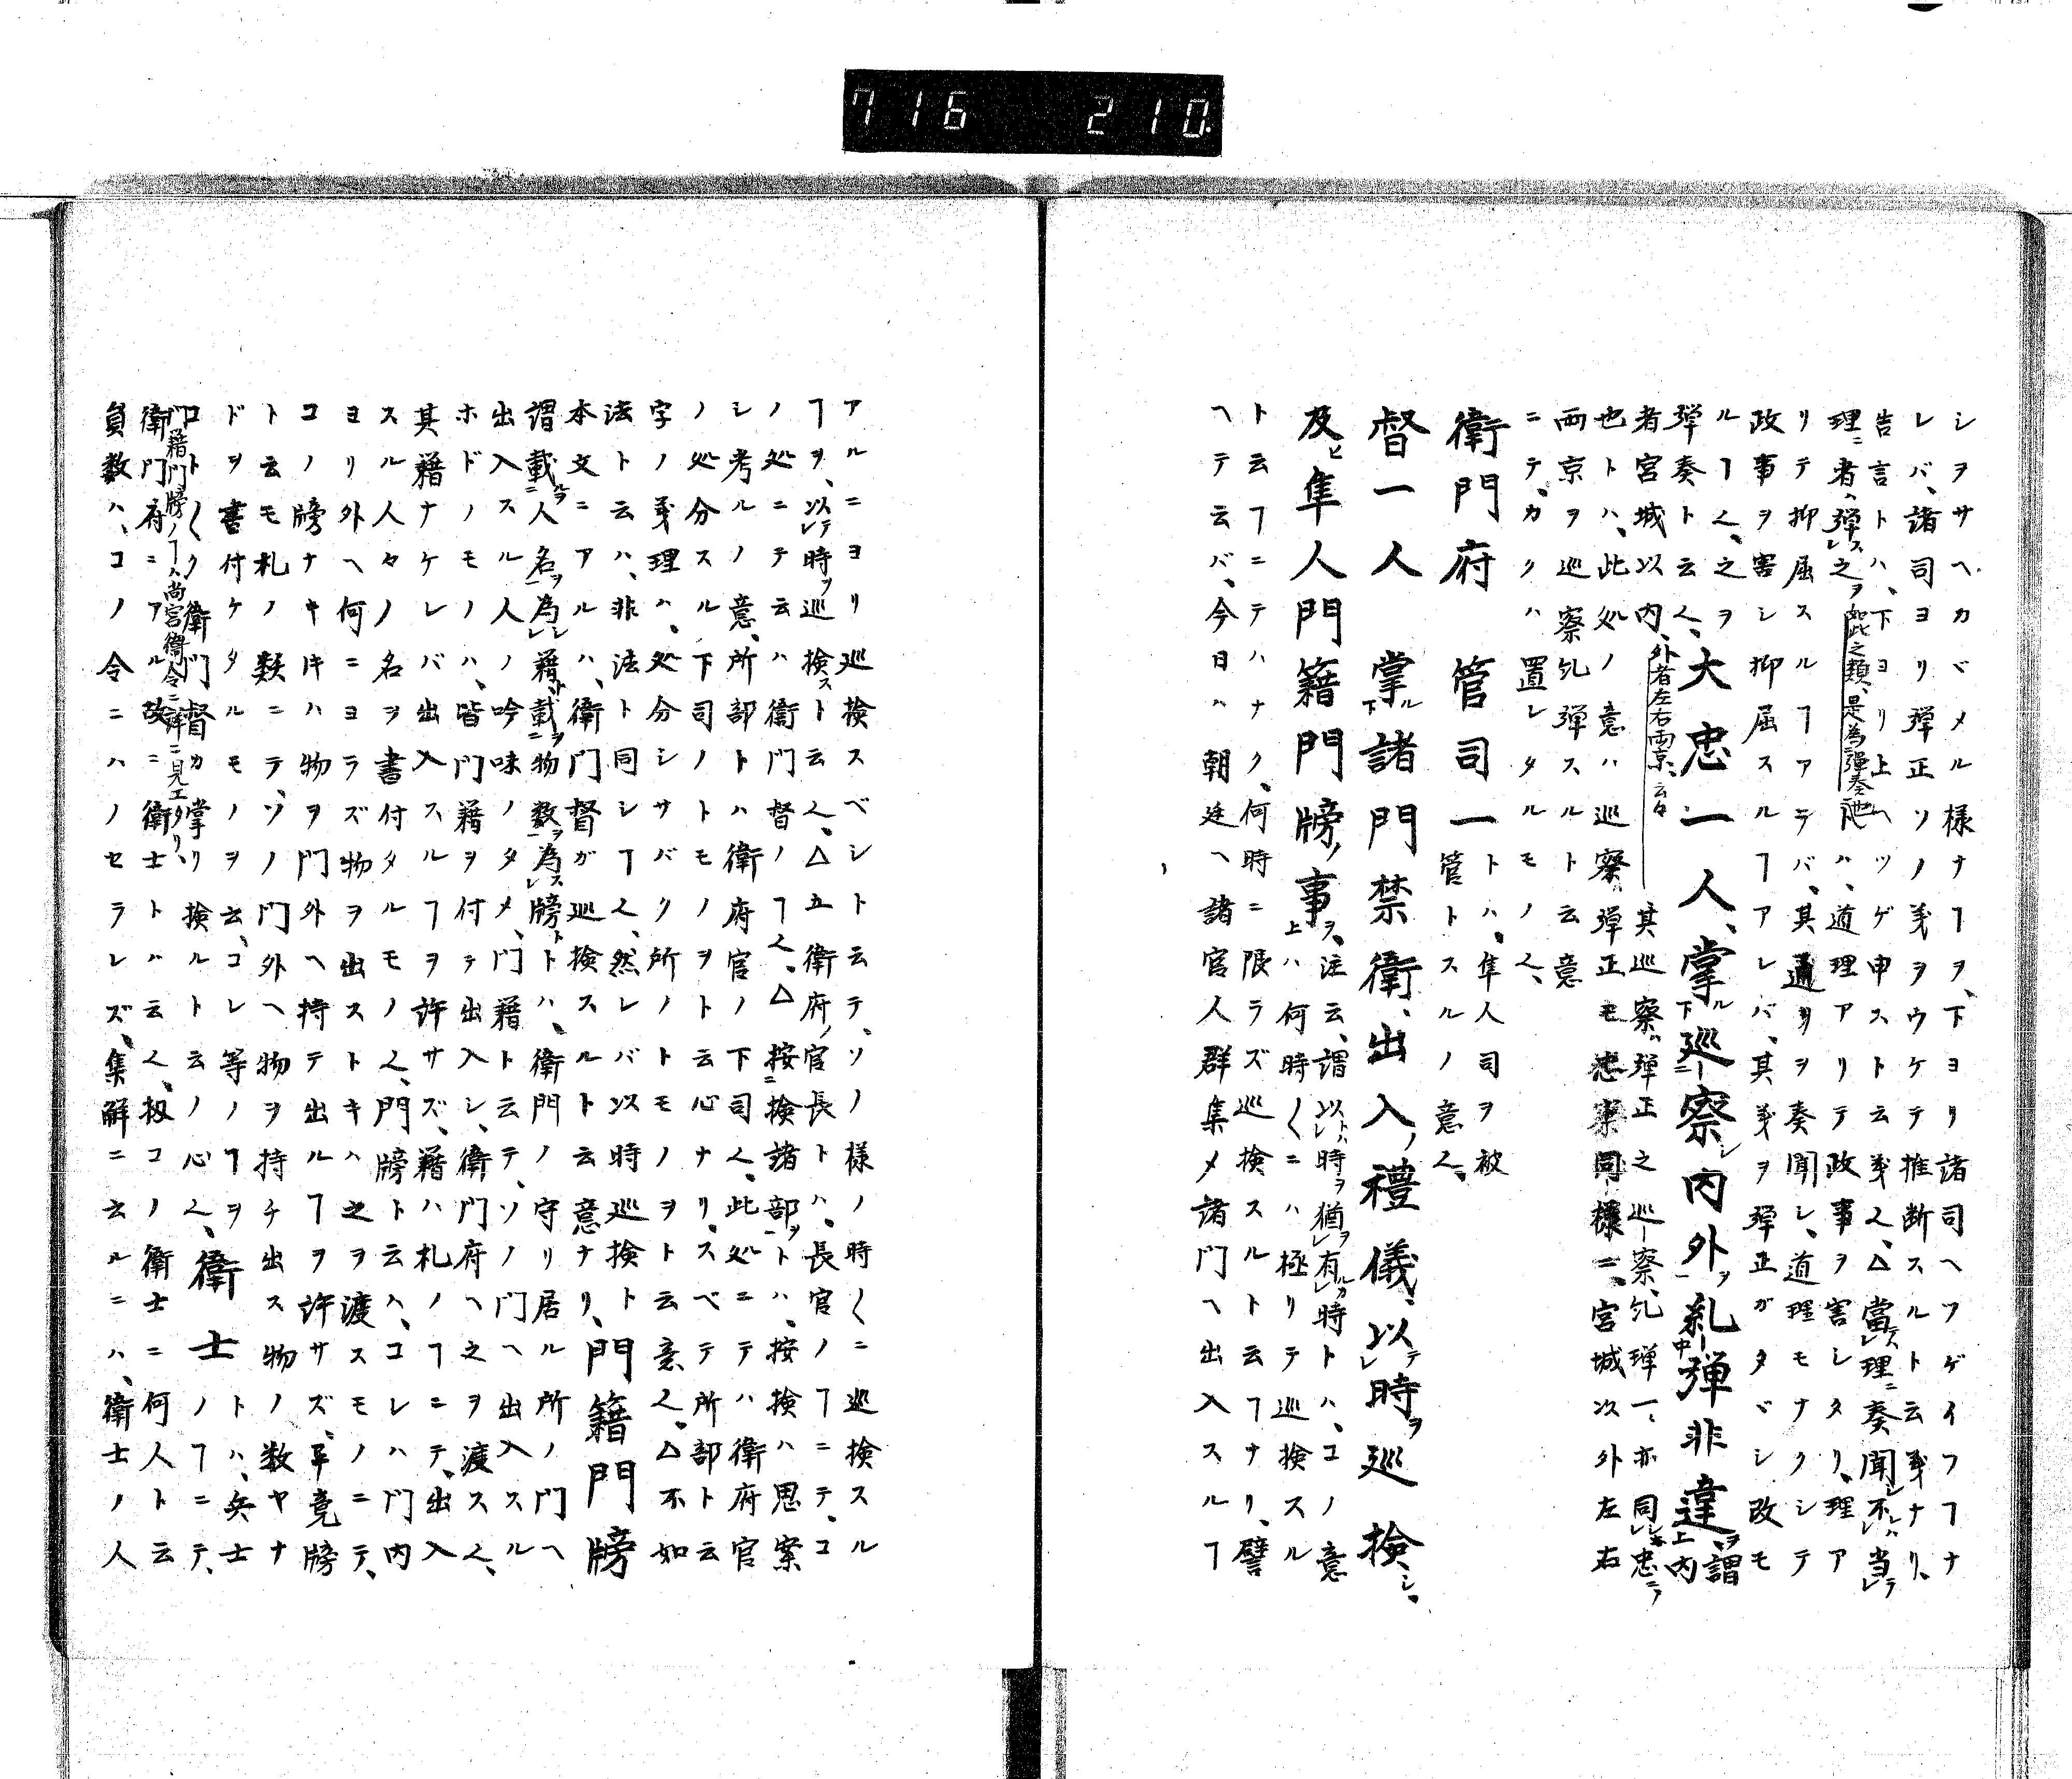 716 210.
シヲサヘカベメル様ナヿヲ、下ヨリ諸司ヘフゲイフヿナ
レバ、諸司ヨリ弾正ソノ義ヲウケテ推断スルト云義ナリ、
告言トハ、下ヨリ上ヘツゲ申スト云義也、△當理ニ奏聞不当
理ニ者、弾之ヲ如此之類、是為弾奏也ハ、道理アリテ政事ヲ害シタリ、理ア
リテ抑屈スルヿアテバ、其通リヲ奏聞シ、道理モナクシテ
政事ヲ害シ抑屈スルヿアレバ、其義ヲ弾正ガタヾシ改モ
ルヿ也、之ヲ弾奏ト云也、大忠一人、掌巡察内外ヲ糺弾非違ヲ、謂内
者宮城以内、外者左右両京、云々其巡察弾正之巡察、糺弾一、亦同大忠ニ
也トハ、此処ノ意ハ巡察弾正モ忠ト同様ニ、宮城次外左右
両京ヲ巡察糺弾スルト云意
ニテ、カクハ置レタルモノ也、
衛門府 管司一トハ、隼人司ヲ被管トスルノ意也、
督一人 掌諸門禁衛、出入ノ禮儀、以時ヲ巡検シ、
及ヒ隼人門籍門牓ノ事ヲ、注云、謂以時ヲ猶ヲ有時トハ、コノ意
上ハ何時〱ニハ極リテ巡検スル
ト云ヿニテハナク、何時ニ限ラズ巡検スルト云ヿナリ、譬
ヘテ云バ、今日ハ朝廷ヘ諸官人群集メ諸門ヘ出入スルヿ
アルニヨリ巡検スベシト云テ、ソノ様ノ時〱ニ巡検スル
ヿヲ、以時ヲ巡検スト云也、△五衛府ノ官長トハ、長官ノヿニテ、コ
ノ処ニテ云ハ衛門督ノヿ也、△按ニ検諸部ヲトハ、按検ハ思案
シ考ルノ意、所部トハ衛府官ノ下司也、此処ニテハ衛府官
ノ処分スル下司ノトモノヲト云心ナリ、スベテ所部ト云
字ノ義理ハ、処分シサバク所ノトモノヲト云意也、△不如
法ト云ハ、非法ト同シヿ也、然レバ以時巡検ト
本文ニアルハ、衛門督ガ巡検スルト云意ナリ、門籍門牓
謂載人名ヲ為籍ト、載物数ヲ為牓トトハ、衛門ノ守リ居ル所ノ門ヘ
出入スル人ノ吟味ノタメ、門籍ト云テ、ソノ門ヘ出入スル
ホドノモノハ、皆門籍ヲ付テ出入シ、衛門府ヘ之ヲ渡ス也、
其籍ナケレバ出入スルヿヲ許サズ、籍ハ札ノヿニテ、出入
スル人々ノ名ヲ書付タルモノ也、門牓ト云ハ、コレハ門内
ヨリ外ヘ何ニヨラズ物ヲ出ストキハ之ヲ渡スモノニテ、
コノ牓ナキキハ物ヲ門外ヘ持テ出ルヿヲ許サズ、畢竟牓
ト云モ札ノ類ニテ、ソノ門外ヘ物ヲ持チ出ス物ノ数ヤナ
ドヲ書付ケタルモノヲ云、コレ等ノヿヲ
コト〱ク衛門督カ掌リ検ルト云ノ心也、衛士トハ、兵士ノヿニテ、
門籍門牓ノヿハ尚宮衛令ニ詳ニ見エタリ、
衛門府ニアル故ニ衛士トハ云也、扨コノ衛士ニ何人ト云
員数ハ、コノ令ニハノセラレズ、集解ニ云ルニハ、衛士ノ人